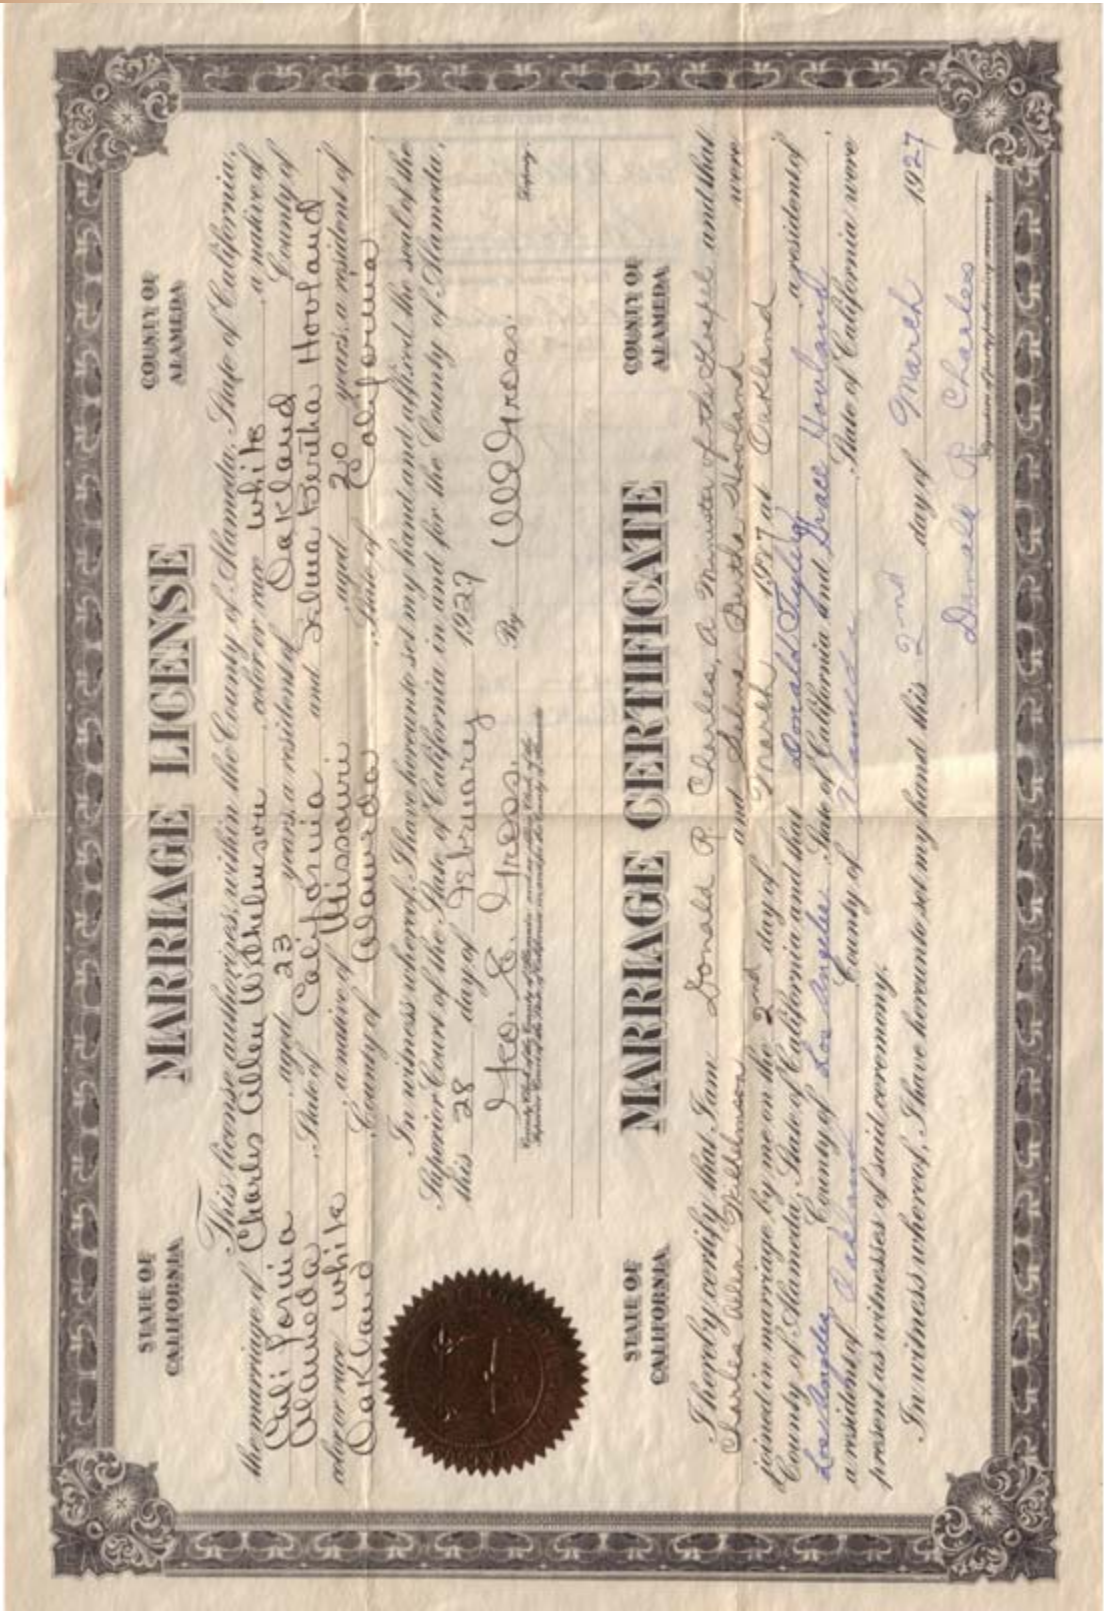 STATE OF CALIFORNIA
MARRIAGE LICENSE
COUNTY OF ALAMEDA
This license authorizes, within the County of Alameda, State of California,
the marriage of Charles Allen Wilhelmson, color or race white, a native of
California, aged 23 years, a resident of Oakland County of
Alameda, State of California and Selma Bertha Hovland
color or race white, a native of Missouri, aged 20 years, a resident of
Oakland County of Alameda, State of California
In witness whereof, I have hereunto set my hand and affixed the seal of the
Superior Court of the State of California in and for the County of Alameda,
this 28 day of February 1927
Geo. E. Gross. By Gross. Deputy
STATE OF CALIFORNIA
MARRIAGE CERTIFICATE
COUNTY OF ALAMEDA
I hereby certify that I am Donald R Charles, a Minister of the Gospel and that
Charles Allen Wilhelmson and Selma Bertha Hovland were
joined in marriage by me on the 2nd day of March 1927 at Oakland
County of Alameda, State of California and that Donald Tyler, a resident of
Los Angeles, County of Los Angeles State of California and Grace Hovland,
a resident of Oakland County of Alameda, State of California were
present as witnesses of said ceremony.
In witness whereof, I have hereunto set my hand this 2nd day of March 1927
Donald R Charles